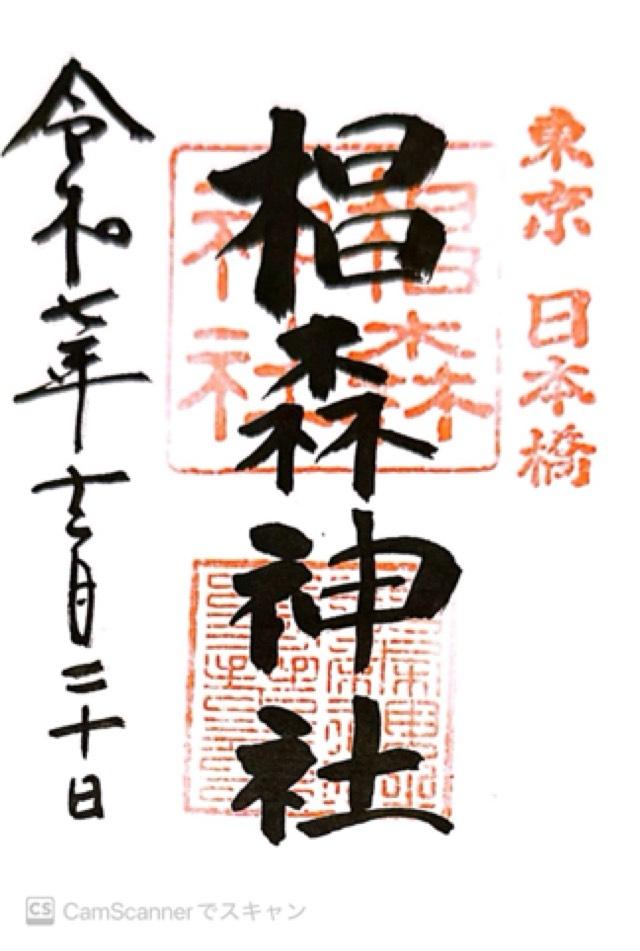 東京 日本橋
椙森神社
椙森
神社
令和七年十二月二十日
CS CamScannerでスキャン